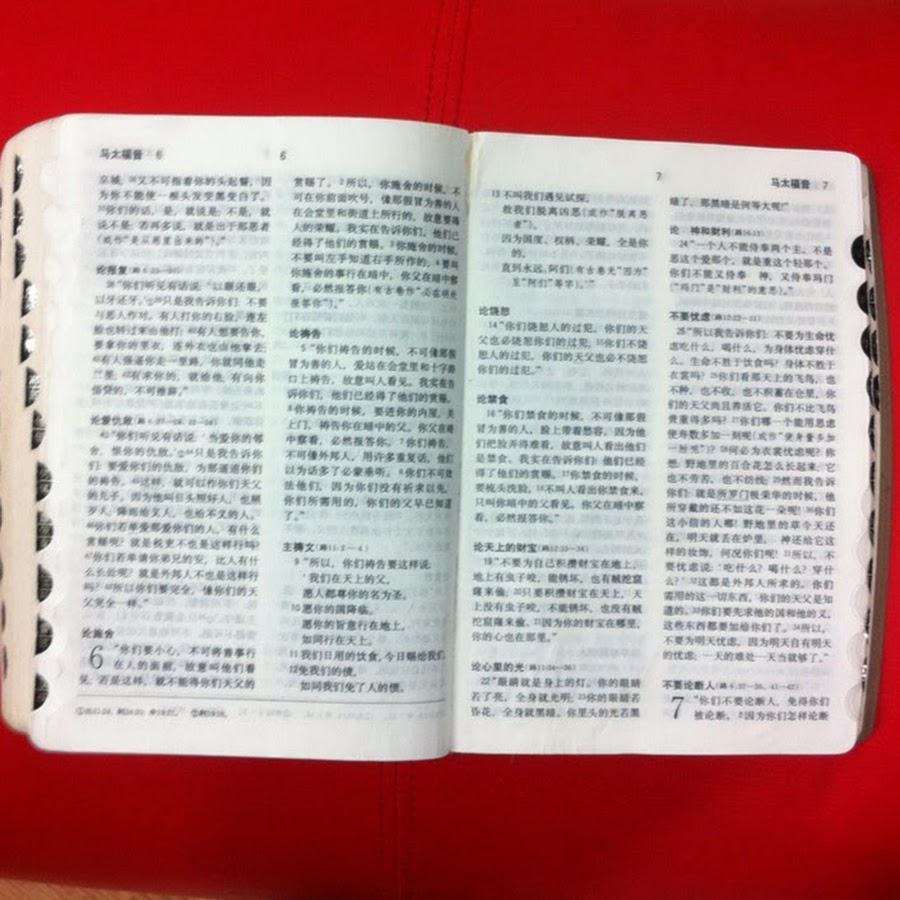 马太福音 6
6
京城；36又不可指着你的头起誓，因
为你不能使一根头发变黑变白了。
37你们的话，是，就说是；不是，就
说不是；若再多说，就是出于那恶者
(或作“是从恶里出来的”)。”
论报复
38“你们听见有话说：‘以眼还眼，
以牙还牙。’39只是我告诉你们：不要
与恶人作对。有人打你的右脸，连左
脸也转过来由他打；40有人想要告你，
要拿你的里衣，连外衣也由他拿去；
41有人强逼你走一里路，你就同他走
二里；42有求你的，就给他；有向你
借贷的，不可推辞。”
论爱仇敌
43“你们听见有话说：‘当爱你的邻
舍，恨你的仇敌。’44只是我告诉
你们：要爱你们的仇敌，为那逼迫你们
的祷告。45这样，就可以作你们天父
的儿子，因为他叫日头照好人，也照
歹人；降雨给义人，也给不义的人。
46你们若单爱那爱你们的人，有什么
赏赐呢？就是税吏不也是这样行吗？
47你们若单请你弟兄的安，比人有什
么长处呢？就是外邦人不也是这样行
吗？48所以你们要完全，像你们的天
父完全一样。”
论施舍
6 “你们要小心，不可将善事行
在人的面前，故意叫他们看
见；若是这样，就不能得你们天父的
赏赐了。2所以，你施舍的时候，不
可在你前面吹号，像那假冒为善的人
在会堂里和街道上所行的，故意要得
人的荣耀。我实在告诉你们，他们已
经得了他们的赏赐。3你施舍的时候，
不要叫左手知道右手所作的；4要叫
你施舍的事行在暗中，你父在暗中察
看，必然报答你(有古卷作“必在明处
报答你”)。”
论祷告
5“你们祷告的时候，不可像那假
冒为善的人，爱站在会堂里和十字路
口上祷告，故意叫人看见。我实在告
诉你们，他们已经得了他们的赏赐。
6你祷告的时候，要进你的内屋，关
上门，祷告你在暗中的父，你父在暗
中察看，必然报答你。7你们祷告，
不可像外邦人，用许多重复话，他们
以为话多了必蒙垂听。8你们不可效
法他们，因为你们没有祈求以先，
你们所需用的，你们的父早已知道
了。”
主祷文(路11:2—4)
9“所以，你们祷告要这样说：
‘我们在天上的父，
愿人都尊你的名为圣。
10愿你的国降临。
愿你的旨意行在地上，
如同行在天上。
11我们日用的饮食，今日赐给我们。
12免我们的债，
如同我们免了人的债。
7
马太福音 7
13不叫我们遇见试探，
救我们脱离凶恶(或作“脱离恶
者”)。
因为国度、权柄、荣耀，全是你
的，
直到永远，阿们(有古卷无“因为”
至“阿们”等字)。’”
论饶恕
14“你们饶恕人的过犯，你们的天
父也必饶恕你们的过犯；15你们不饶
恕人的过犯，你们的天父也必不饶恕
你们的过犯。”
论禁食
16“你们禁食的时候，不可像那假
冒为善的人，脸上带着愁容，因为他
们把脸弄得难看，故意叫人看出他们
是禁食。我实在告诉你们：他们已经
得了他们的赏赐。17你禁食的时候，
要梳头洗脸，18不叫人看出你禁食来，
只叫你暗中的父看见。你父在暗中察
看，必然报答你。”
论天上的财宝(路12:33—34)
19“不要为自己积攒财宝在地上，
地上有虫子咬，能锈坏，也有贼挖窟
窿来偷；20只要积攒财宝在天上，天
上没有虫子咬，不能锈坏，也没有贼
挖窟窿来偷。21因为你的财宝在哪里，
你的心也在那里。”
论心里的光(路11:34—36)
22“眼睛就是身上的灯。你的眼睛
若了亮，全身就光明；23你的眼睛若
昏花，全身就黑暗。你里头的光若黑
暗了，那黑暗是何等大呢！”
论 神和财利(路16:13)
24“一个人不能侍奉两个主。不是
恶这个爱那个，就是重这个轻那个。
你们不能又侍奉 神，又侍奉玛门
(“玛门”是“财利”的意思)。”
不要忧虑(路12:22—31)
25“所以我告诉你们：不要为生命忧
虑吃什么，喝什么，为身体忧虑穿什
么。生命不胜于饮食吗？身体不胜于
衣裳吗？26你们看那天上的飞鸟，也
不种，也不收，也不积蓄在仓里，你
们的天父尚且养活它。你们不比飞鸟
贵重得多吗？27你们哪一个能用思虑
使寿数多加一刻呢(或作“使身量多加
一肘呢”)？28何必为衣裳忧虑呢？你
想：野地里的百合花怎么长起来；它
也不劳苦，也不纺线；29然而我告诉
你们：就是所罗门极荣华的时候，他
所穿戴的还不如这花一朵呢！30你们
这小信的人哪！野地里的草今天还
在，明天就丢在炉里，神还给它这
样的妆饰，何况你们呢！31所以，不
要忧虑说：‘吃什么？喝什么？穿什
么？’32这都是外邦人所求的。你们
需用的这一切东西，你们的天父是知
道的。33你们要先求他的国和他的义，
这些东西都要加给你们了。34所以，
不要为明天忧虑，因为明天自有明天
的忧虑；一天的难处一天当就够了。”
不要论断人(路6:37—38，41—42)
7 “你们不要论断人，免得你们
被论断。2因为你们怎样论断